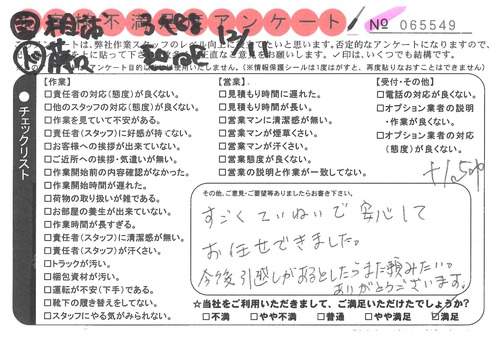 不満 アンケート
No 065549
12/11
このアンケートは、弊社作業スタッフのレベル向上に役立てたいと思います。否定的なアンケートになりますので、
チェックリスト
【作業】
□責任者の対応(態度)が良くない。
□他のスタッフの対応(態度)が良くない。
□作業を見ていて不安がある。
□責任者(スタッフ)に好感が持てない。
□お客様への挨拶が出来ていない。
□ご近所への挨拶・気遣いが無い。
□作業開始前の内容確認がなかった。
□作業開始時間が遅れた。
□荷物の取り扱いが雑である。
□お部屋の養生が出来ていない。
□作業時間が長すぎる。
□責任者(スタッフ)に清潔感が無い。
□責任者(スタッフ)が汗くさい。
□トラックが汚い。
□梱包資材が汚い。
□運転が不安(下手)である。
□靴下の履き替えをしてない。
□スタッフにやる気がみられない。
【営業】
□見積もり時間に遅れた。
□見積もり時間が長い。
□営業マンに清潔感が無い。
□営業マンが煙草くさい。
□営業マンが汗くさい。
□営業態度が良くない。
□営業の説明と作業が一致してない。
【受付・その他】
□電話の対応が良くない。
□オプション業者の説明・作業が良くない。
□オプション業者の対応(態度)が良くない。
その他、ご意見・ご要望等ありましたらお書き下さい。
すごくていねいで安心して
お任せできました。
今後引越しがあるとしたらまた頼みたい。
ありがとうございます。
★当社をご利用いただきまして、ご満足いただけたでしょうか?
□不満 □やや不満 □普通 □やや満足 ☑満足